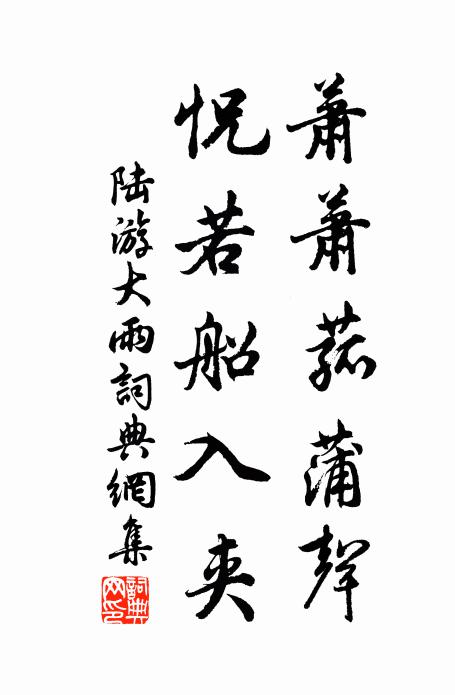 蕭蕭菰蒲聲
怳若船入夾
陸游大雨詞典網集
詞典網印